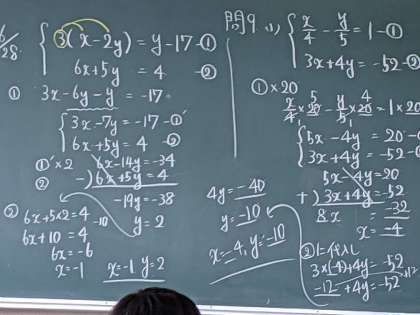 6/28
3(x-2y)=y-17-①
6x+5y=4 -②
① 3x-6y-y=-17
3x-7y=-17-①'
6x+5y=4 -②
①'×2 6x-14y=-34
② -) 6x+5y=4
-19y=-38
y=2
② 6x+5×2=4
6x+10=4 -10
6x=-6
x=-1
x=-1 y=2
問9 (1)
x/4 - y/5 = 1 -①
3x+4y=-52 -②
①×20
x/4 ×20 - y/5 ×20 = 1×20
5x-4y=20
3x+4y=-52
5x-4y=20
+) 3x+4y=-52
8x = -32
x=-4
②に代入
3×(-4)+4y=-52
-12+4y=-52
4y=-40
y=-10
x=-4, y=-10